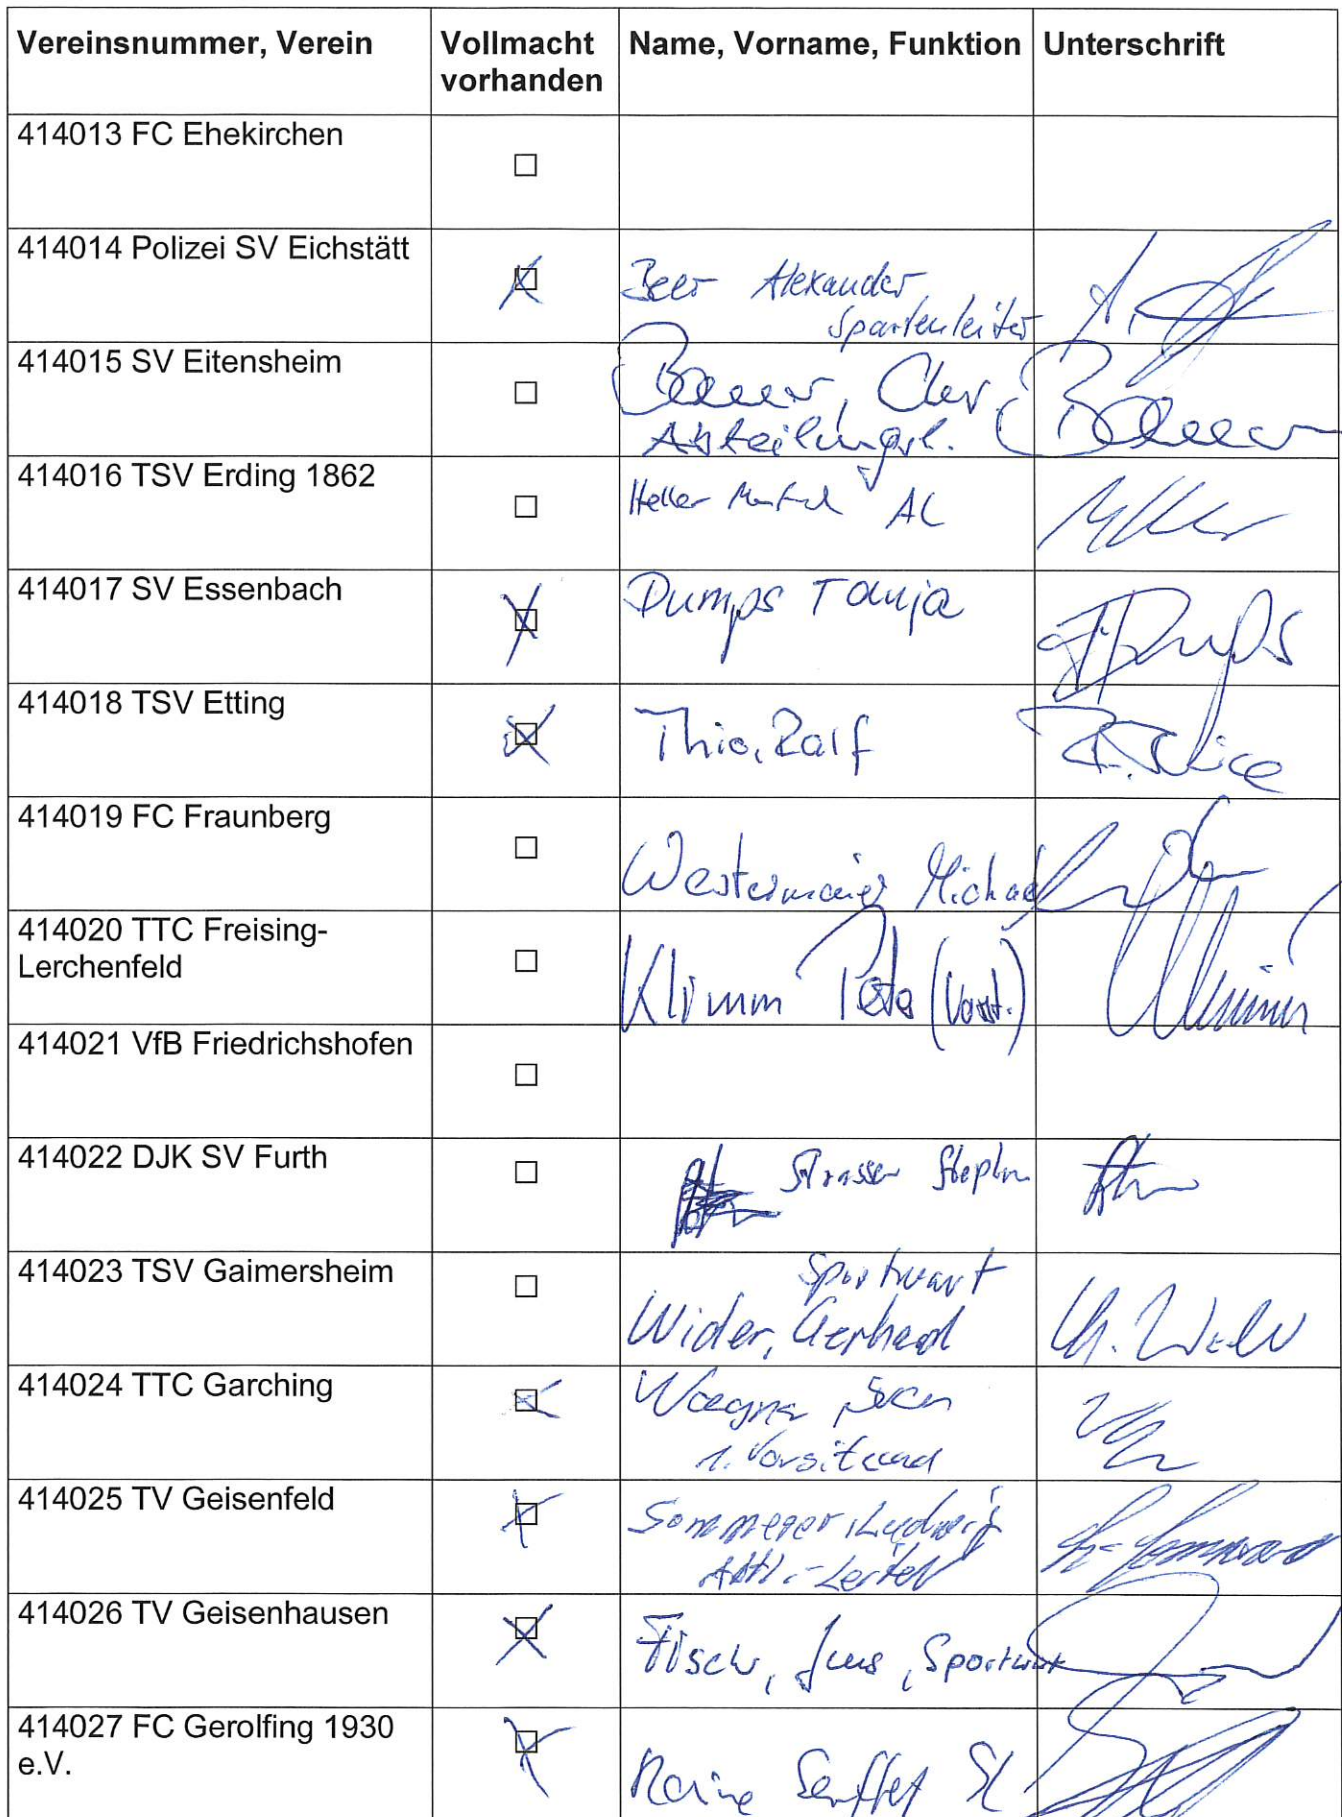 Vereinsnummer, Verein Vollmacht vorhanden Name, Vorname, Funktion Unterschrift
414013 FC Ehekirchen
414014 Polizei SV Eichstätt Beer Alexander,
Spartenleiter
414015 SV Eitensheim
Abteilungsl.
414016 TSV Erding 1862 Heller AL
414017 SV Essenbach Dumps Tanja
414018 TSV Etting Thie, Ralf
414019 FC Fraunberg
Westermaier Michael
414020 TTC Freising-
Lerchenfeld
Klimm Peter (Vorst.)
414021 VfB Friedrichshofen
414022 DJK SV Furth Strasser Stephan
414023 TSV Gaimersheim Sportwart
Wider, Gerhard
414024 TTC Garching Wagner
1. Vorsitzend
414025 TV Geisenfeld Sommerer, Ludwig
Abtl.-Leiter
414026 TV Geisenhausen
Fisch, Jens, Sportwart
414027 FC Gerolfing 1930
e.V.